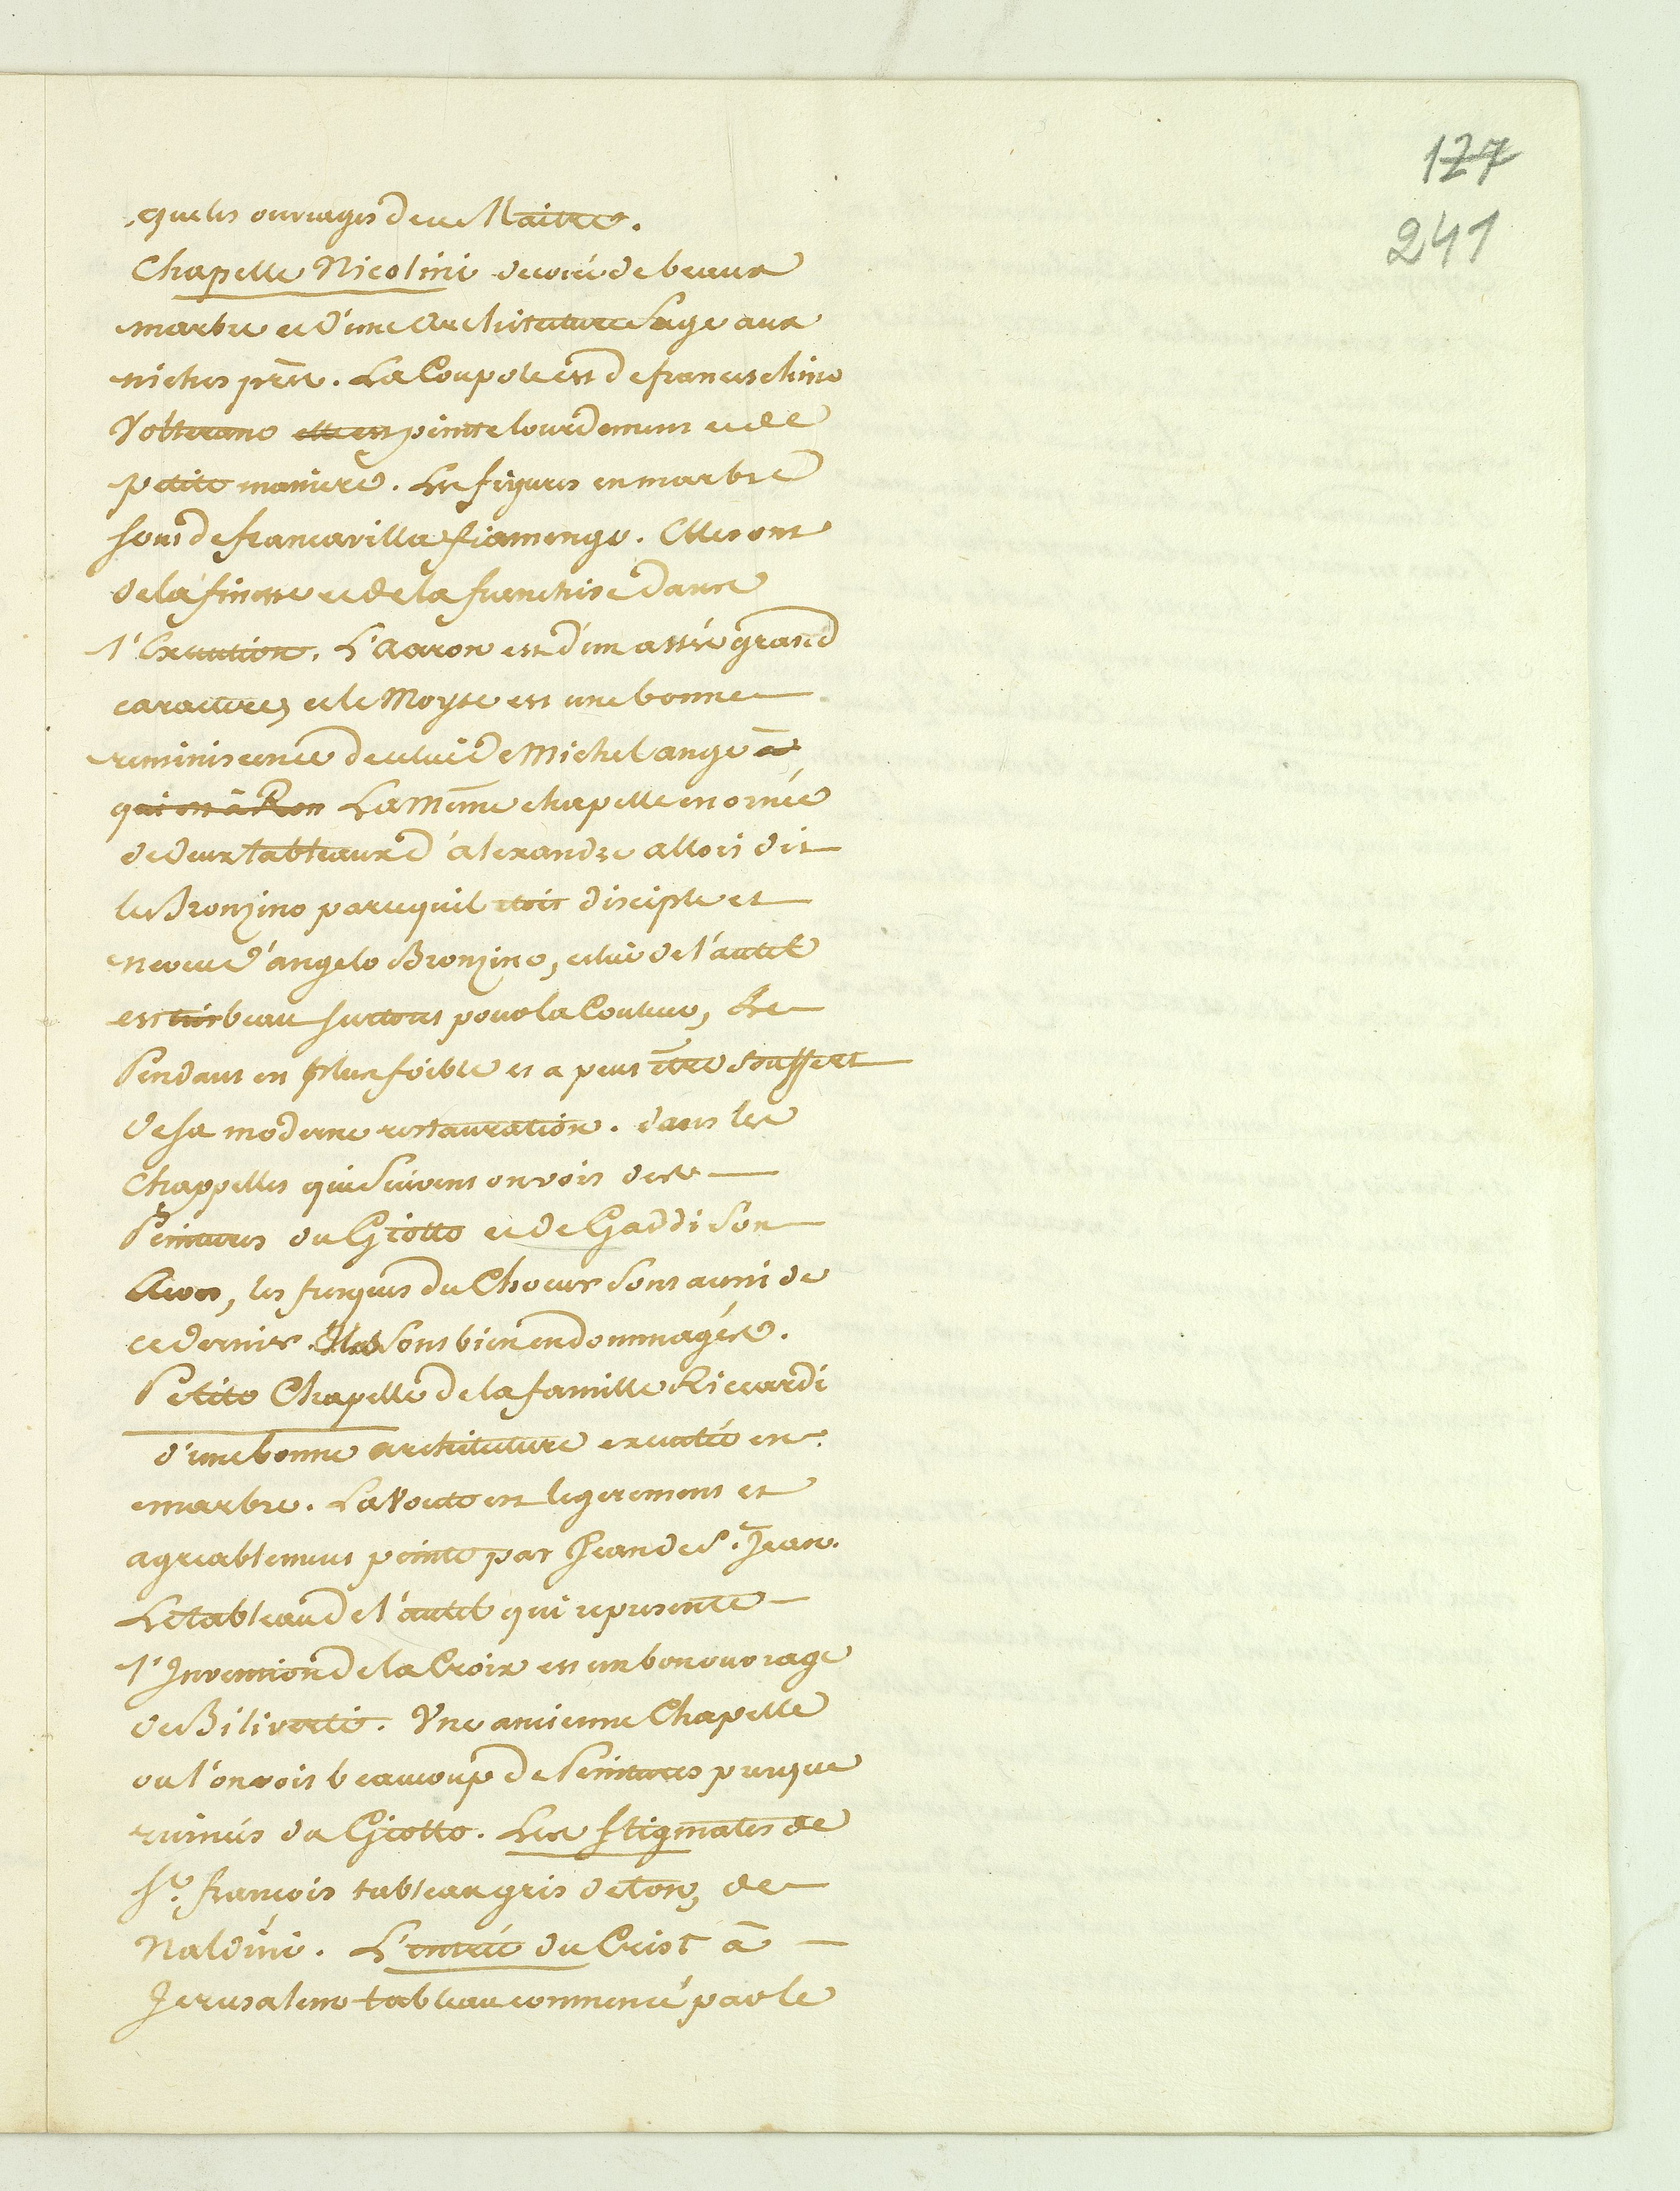 127
241
que les ouvrages de ce Maitre.
Chapelle Nicolini decoré de beaux
marbre et d'une Architecture Sage aux
niches prés. La Coupole est de franceschino
Volterano elle est peinte lourdement et de
petite maniere. Les figures en marbre
sont de francavilla fiamengo. Elles ont
de la finesse et de la franchise dans
l'Execution. L'Aaron est d'un assés grand
caractere, et le Moyse est une bonne
reminiscence de celui de Michel ange à
qui est à Rom La même chapelle est ornée
de deux tableaux d'alexandre allori dit
le Bronzino parcequ'il etoit disciple et
neveu d'angelo Bronzino, celui de l'autel
est très beau surtout pour la Couleur, Le
Pendant est plus foible et a peut être souffert
de sa moderne restauration. dans les
Chappelles qui Suivent on voit des
Peintures du Giotto et de Gaddi Son
, les fresques du Choeur Sont aussi de
ce dernier. Elles Sont bien endommagées.
Petite Chapelle de la famille Riccardi
d'une bonne architecture executée en
marbre. La Voute est legerement et
agreablement peinte par Jean de S. Jean.
Le tableau de l'autel qui represente
l'Invention de la Croix est un bon ouvrage
de Biliverti. Une ancienne Chapelle
ou l'on voit beaucoup de Peintures presque
ruinées du Giotto. Les Stigmates de
St. françois tableau gris de ton, de
Naldini. L'entrée du Crist à
Jerusalem tableau commencé par le